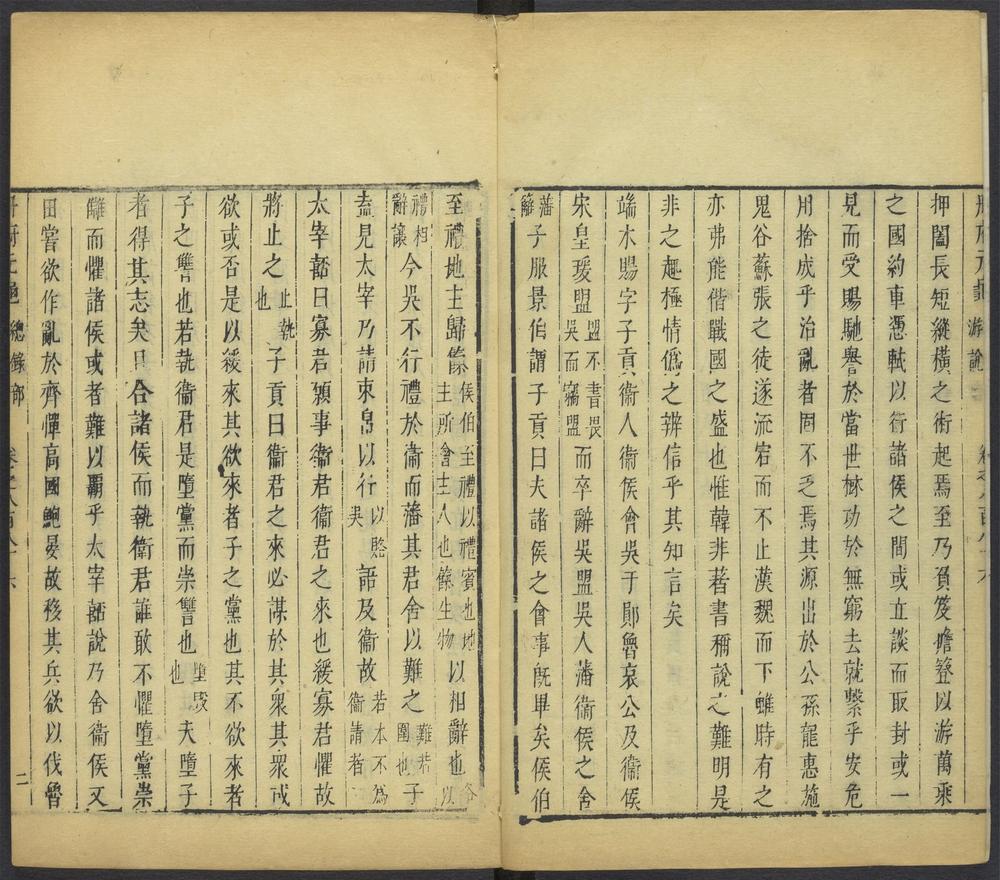 冊府元龜 游說 卷之八百八十六
押闔長短縱橫之術起焉至乃負笈擔簦以游萬乘
之國約車憑軾以行諸侯之間或立談而取封或一
見而受賜馳譽於當世楙功於無窮去就繫乎安危
用捨成乎治亂者固不乏焉其源出於公孫龍惠施
鬼谷蘇張之徒遂流宕而不止漢魏而下雖時有之
亦弗能偕戰國之盛也惟韓非著書稱說之難明是
非之趣極情僞之辨信乎其知言矣
端木賜字子貢衞人衞侯會吳于鄖魯哀公及衞侯
宋皇瑗盟盟不書畏吳而竊盟而卒辭吳盟吳人藩衞侯之舍
藩籬子服景伯謂子貢曰夫諸侯之會事旣畢矣侯伯
至禮地主歸餼侯伯至禮以禮賓也地主所會主人也餼生物以相辭也各以
禮相辭讓今吳不行禮於衞而藩其君舍以難之難若圍也子
盍見太宰乃請束帛以行以賂吳語及衞故若本不爲衞請者
太宰嚭曰寡君願事衞君衞君之來也緩寡君懼故
將止之止執也子貢曰衞君之來必謀於其衆其衆或
欲或否是以緩來其欲來者子之黨也其不欲來者
子之讐也若執衞君是墮黨而崇讐也墮毀也夫墮子
者得其志矣且合諸侯而執衞君誰敢不懼墮黨崇
讐而懼諸侯或者難以霸乎太宰嚭說乃舍衞侯又
田嘗欲作亂於齊憚高國鮑晏故移其兵欲以伐魯
冊府元龜 總錄部 卷之八百八十六 二